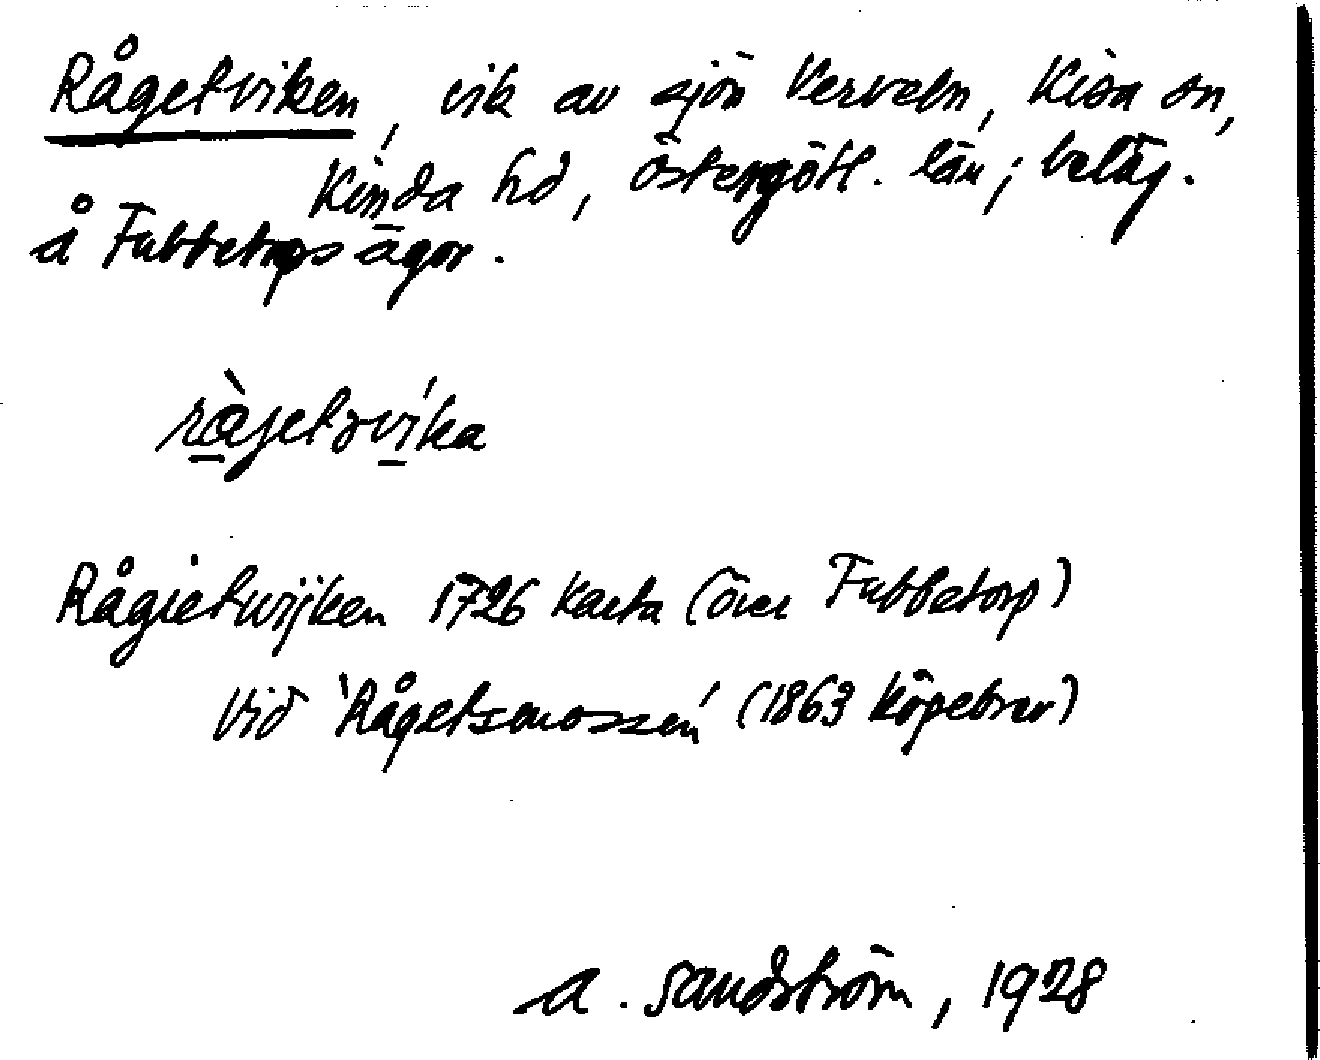 Rågetviken, vik av sjön Verveln, Kisa sn,
Kinda hd, Östergötl. län; beläg.
å Fubbetorps ägor.
ràgetvíka
Rågietwijken 1726 Karta (över Fubbetorp)
Vid 'Rågetsmossen' (1863 Köpebrev)
A. Sandström, 1928